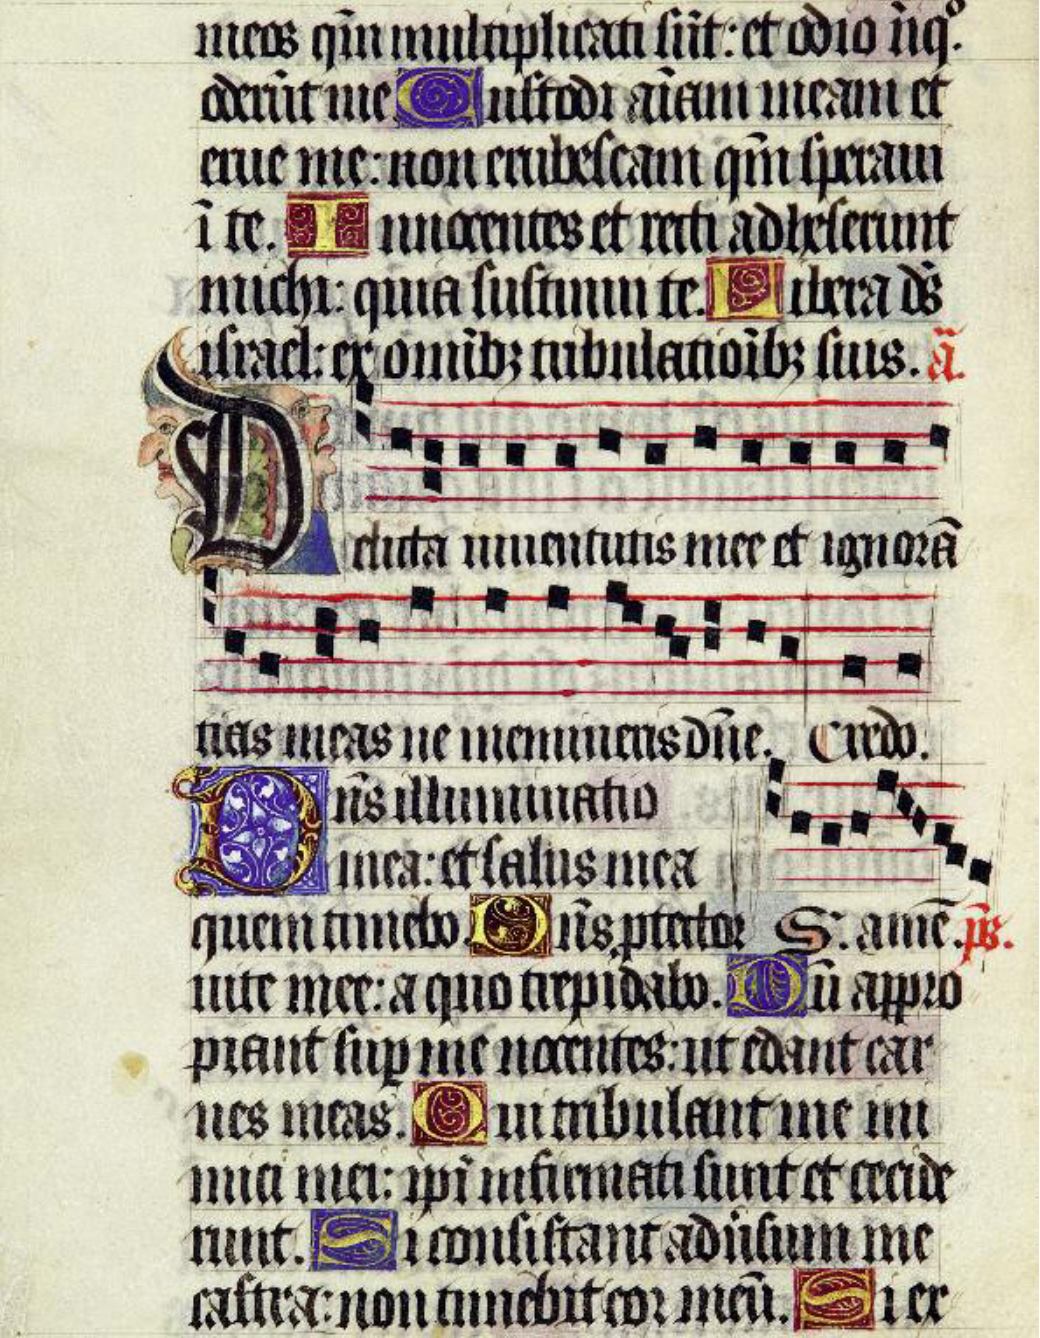 meos qm̄ multiplicati sūt: et odio īiqͦ.
oderūt me Custodi aīam meam et
erue me: non erubescam qm̄ speraui
ī te. Innocentes et recti adheserunt
michi: quia sustinui te. Libera ds̄
israel: ex omībꝫ tribulatioībꝫ suis. ā.
Delicta iuuentutis mee et ignorā
tias meas ne memineris dn̄e. Credo.
Dn̄s illuminatio
mea: et salus mea
quem timebo. Dn̄s ꝓtector S. amē. ps̄.
uite mee: a quo trepidabo. Dū appro
piant suꝑ me nocentes: ut edant car
nes meas. Qui tribulant me ini
mici mei: ipī infirmati sunt et cecide
runt. Si consistant adūsum me
castra: non timebit cor meū. Si ex